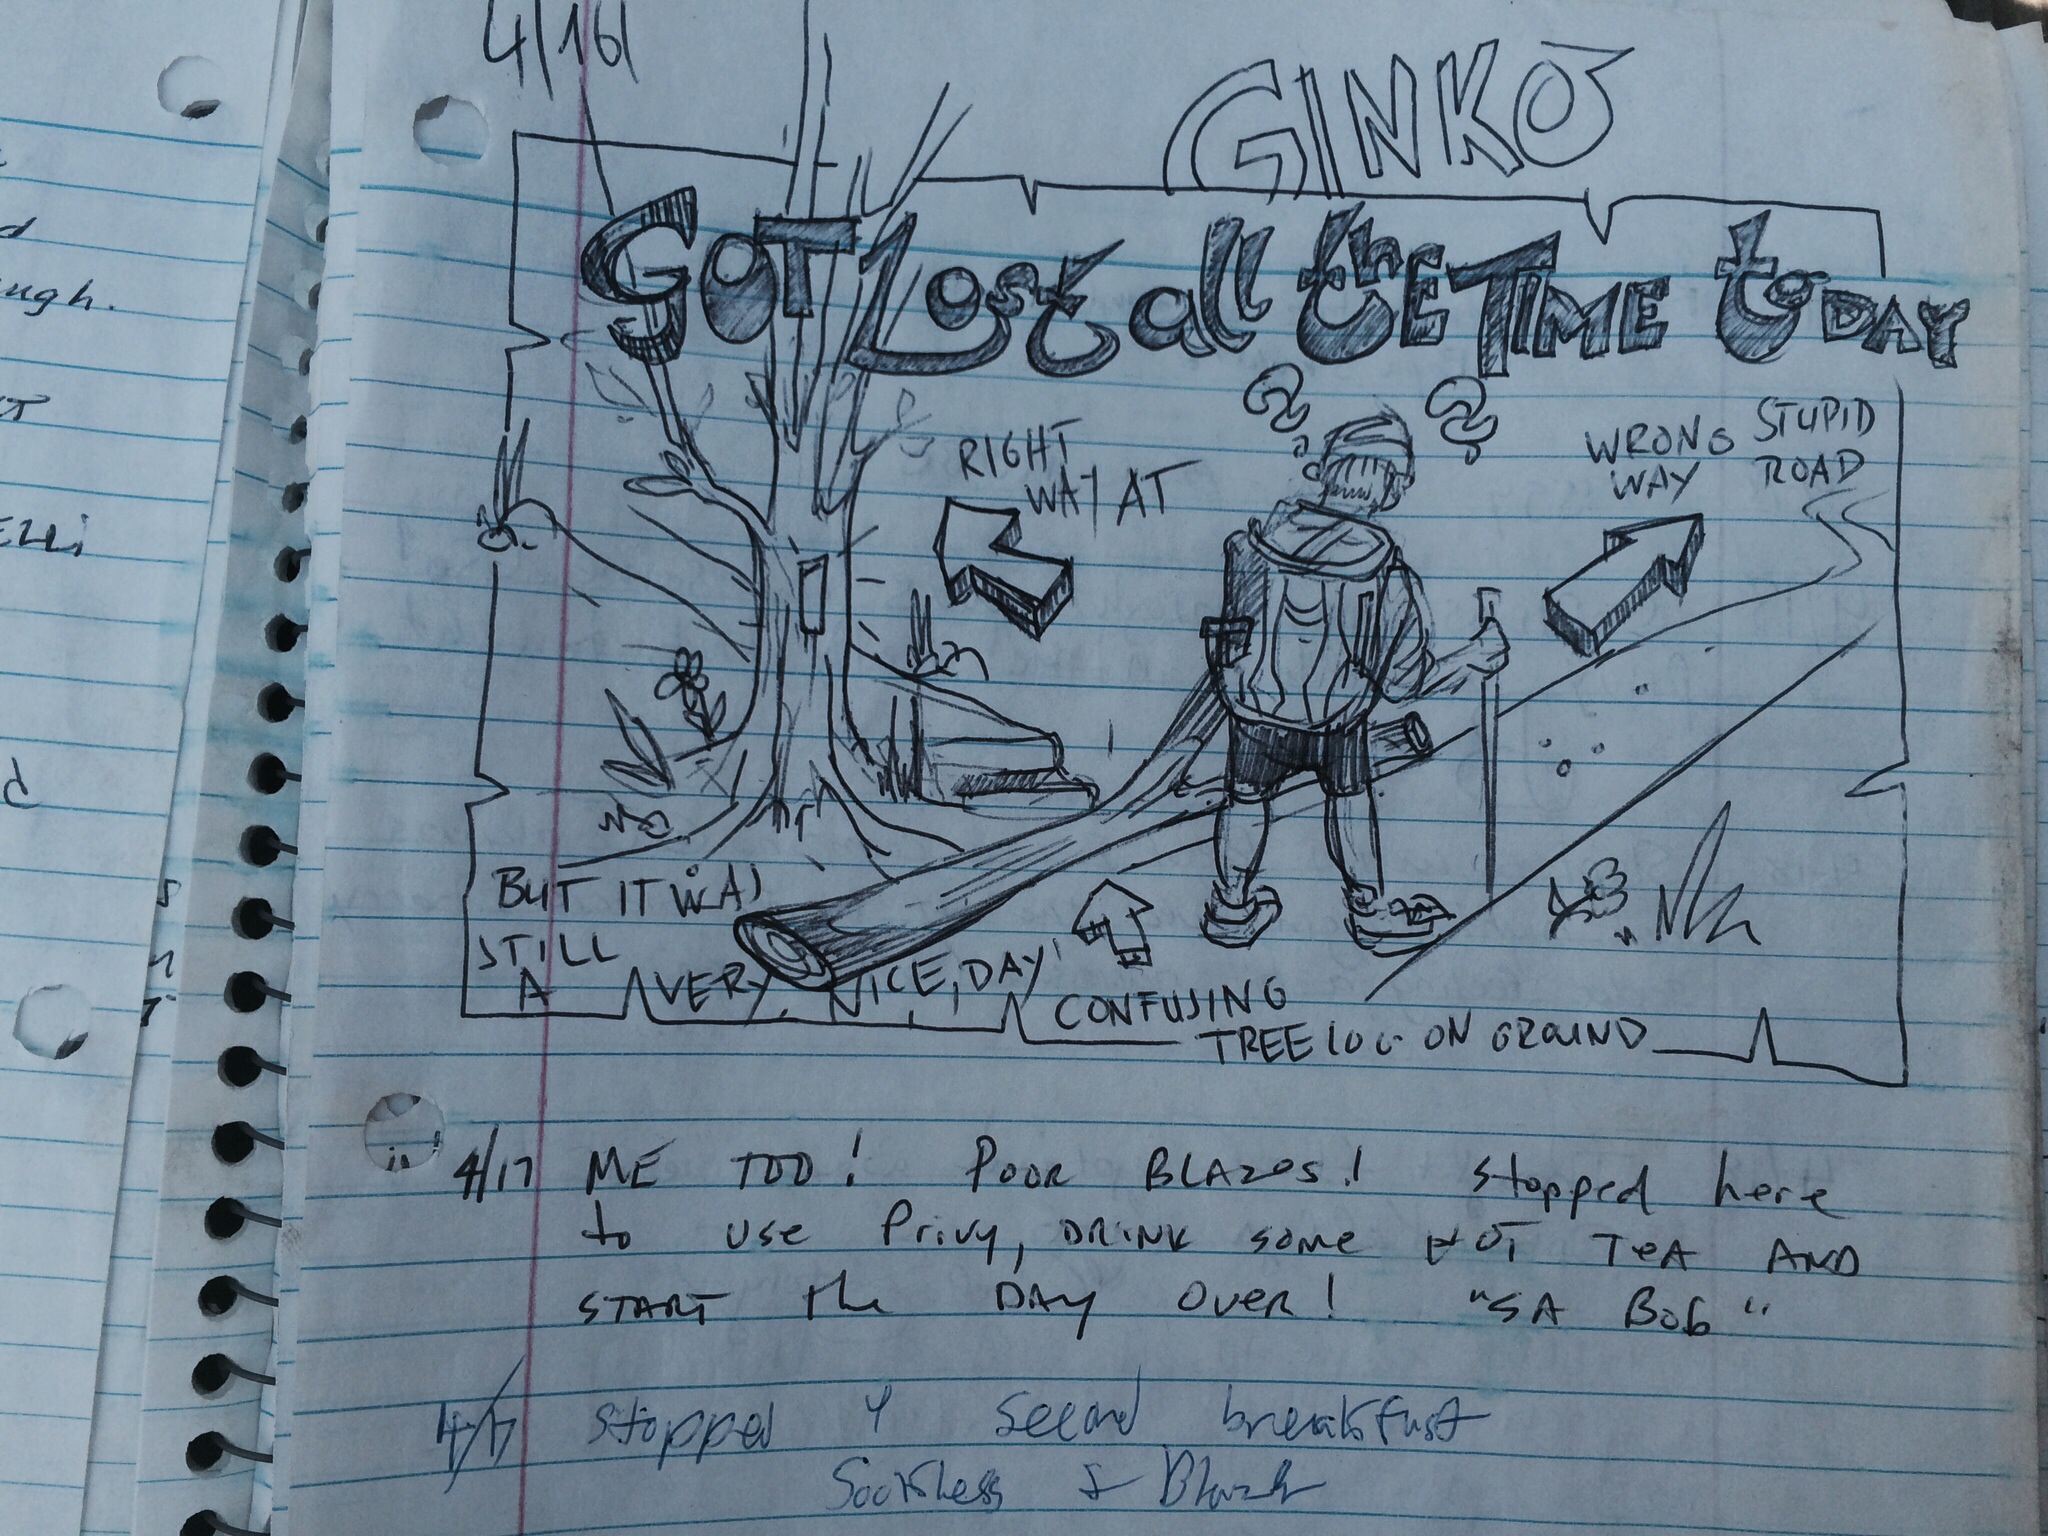 4/16
GINKO
GOT Lost all thE TIME toDAY
RIGHT
WAY AT
WRONG
WAY
STUPID
ROAD
BUT IT WAS
STILL
A VERY NICE DAY!
CONFUSING
TREE LOG ON GROUND
4/17 ME TOO! POOR BLAZES! Stopped here
to use Privy, DRINK some HOT TeA AND
START the DAY OVER! "SA BoB"
4/17 stopped 4 second breakfast
Sockless &
ugh.
ELLi